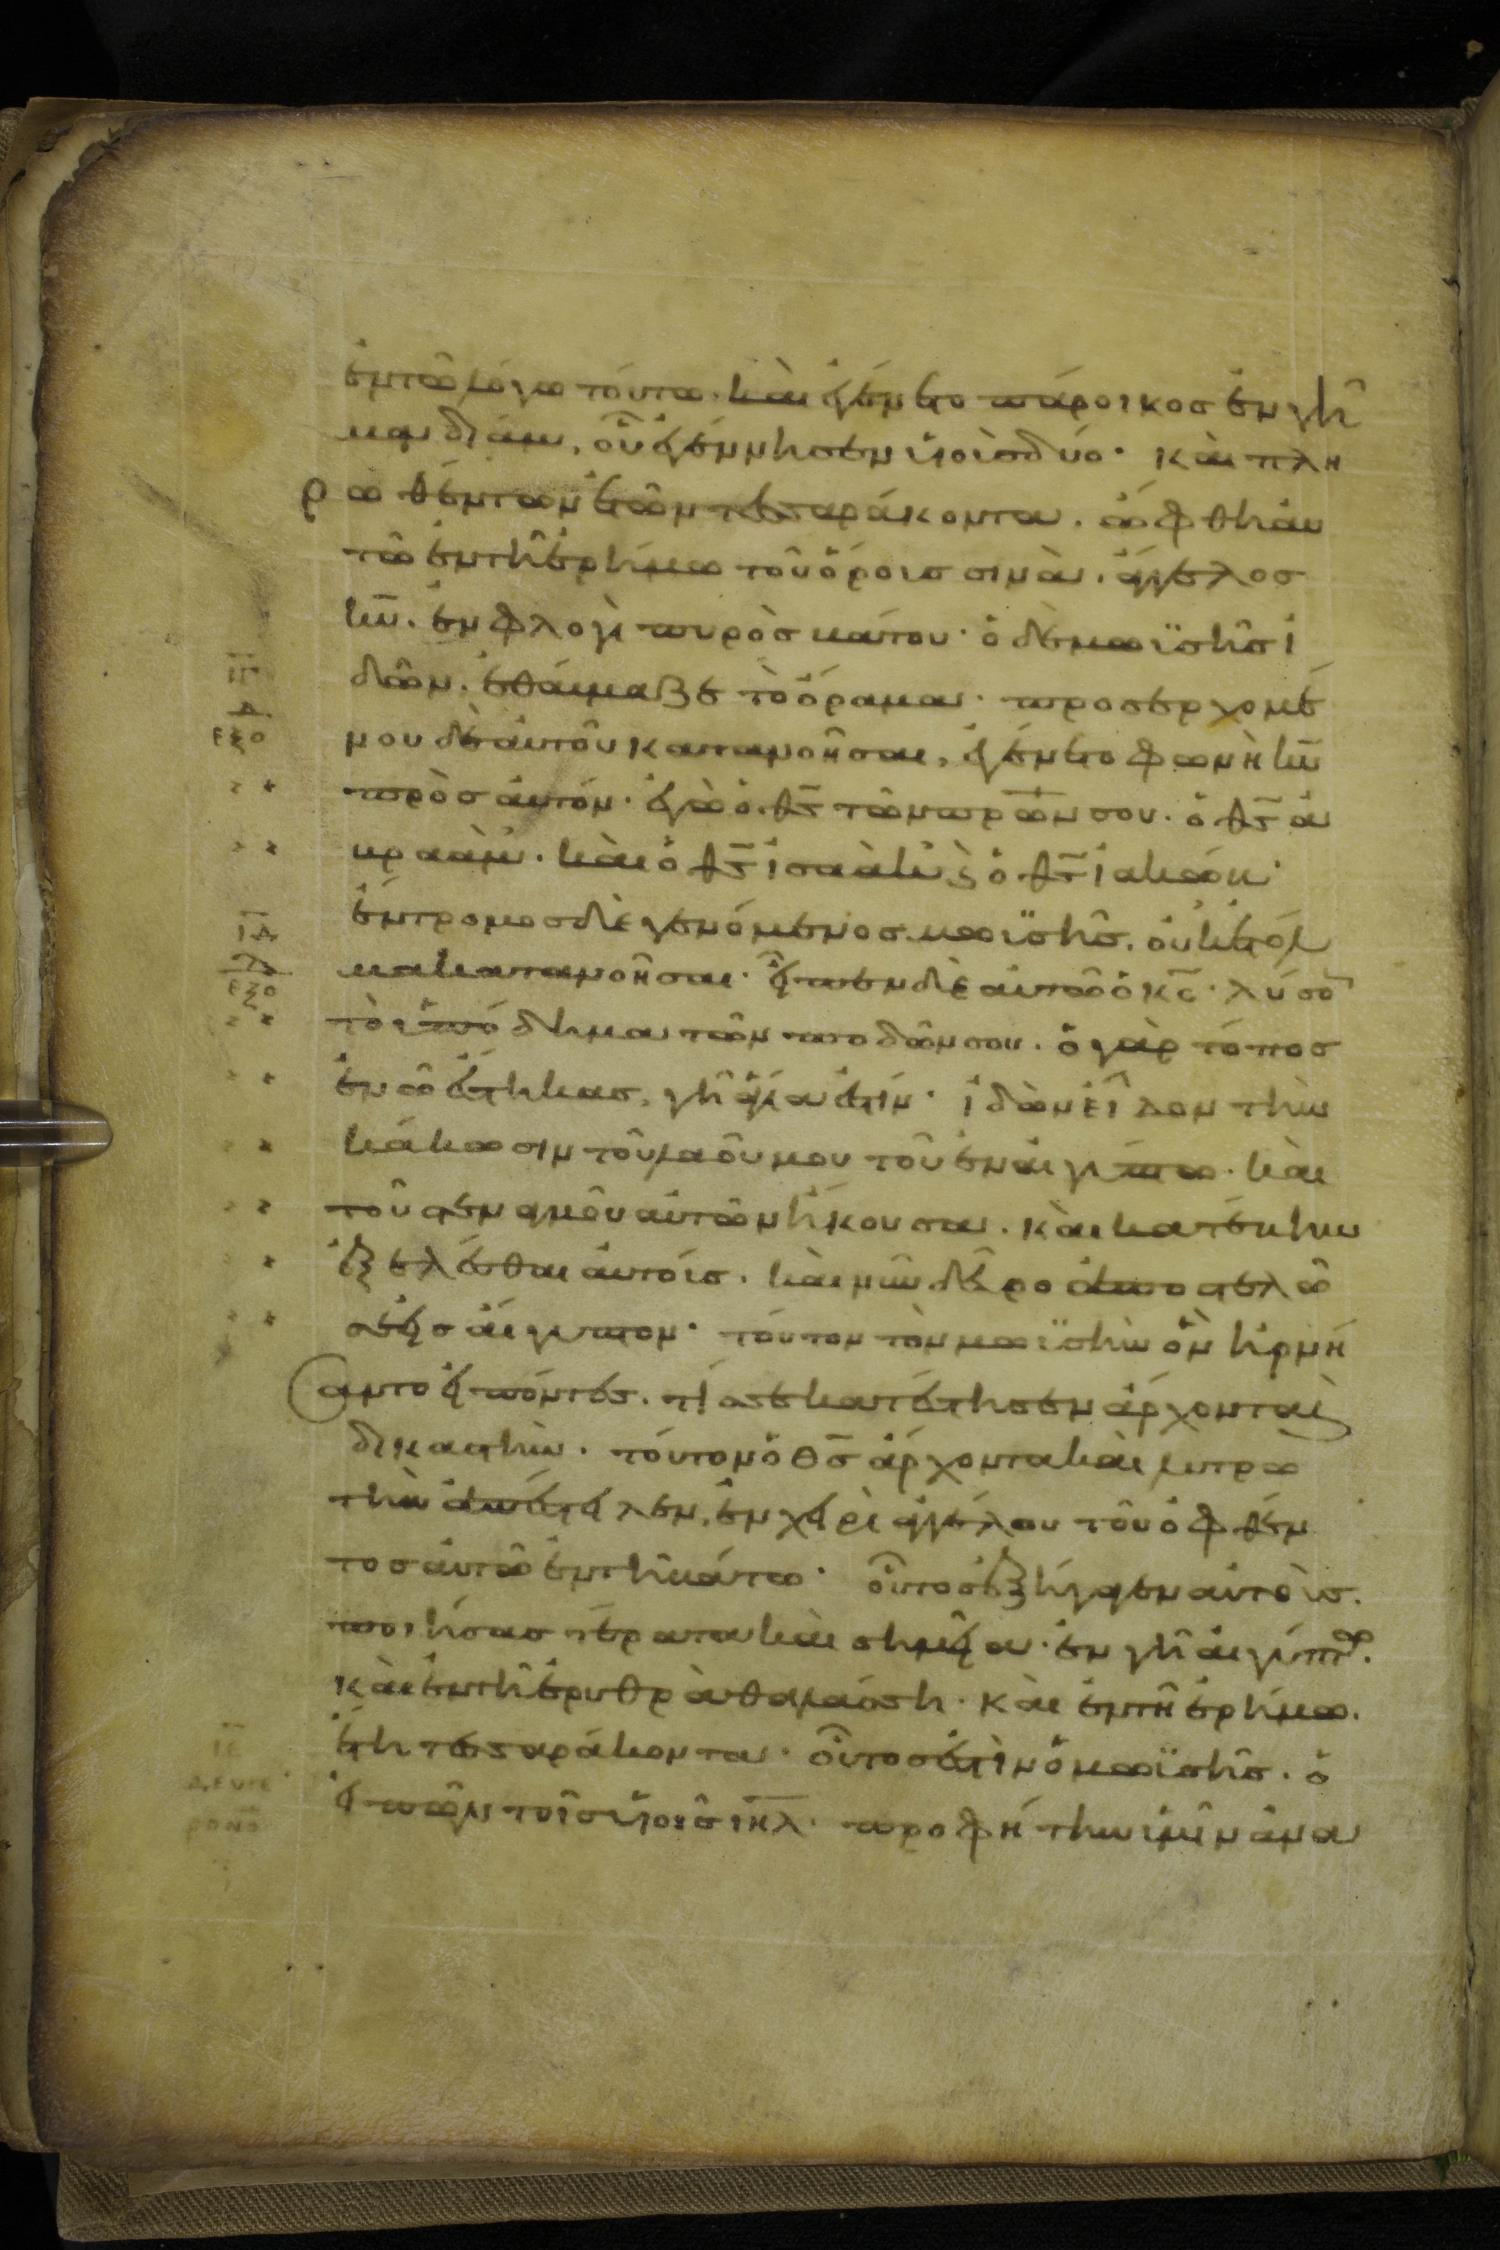 ἐν τῶ λόγω τούτω. καὶ ἐγένετο πάροικος ἐν γῆ
μαδιὰμ, οὗ ἐγέννησεν υἱοὺς δύο· καὶ πλη
ρωθέντων ἐτῶν τεσσαράκοντα. ὤφθη αὐ
τῶ ἐν τῆ ἐρήμω τοῦ ὄρους σινὰ. ἄγγελος
κυ̅. ἐν φλογὶ πυρὸς βάτου· ὁ δὲ μωϋσῆς ἰ
δῶν. ἐθαύμαζε τὸ ὅραμα· προσερχομέ
νου δὲ αὐτοῦ κατανοῆσαι, ἐγένετο φωνὴ κυ̅
πρὸς αὐτόν· ἐγὼ ὁ θς̅ τῶν πρ̅ων σου. ὁ θς̅ ἀ
βραάμ. καὶ ὁ θς̅ ἰσαὰκ ϗ ὁ θς̅ ἰακώβ·
ἔντρομος δὲ γενόμενος μωϋσῆς. οὐκ ἐτόλ
μα κατανοῆσαι· εἶπεν δὲ αὐτῶ ὁ κς̅· λύσο
τὸ ὑπόδημα τῶν ποδῶν σου. ὁ γὰρ τόπος
ἐν ῶ ἕστηκας, γῆ ἁγία ἐστίν· ἰδὼν εἶδον τὴν
κάκωσιν τοῦ λαοῦ μου τοῦ ἐν αἰγύπτω. καὶ
τοῦ στεναγμοῦ αὐτῶν ἤκουσα. καὶ κατέβην
ἐξελέσθαι αὐτούς. καὶ νῦν δεῦρο ἀποστελῶ
σε εἰς αἴγυπτον· τοῦτον τὸν μωϋσῆν ὃν ἠρνή
σαντο εἰπόντες. τίς σε κατέστησεν ἄρχοντα ϗ
δικαστὴν. τοῦτον ὁ θς̅ ἄρχοντα καὶ λυτρω
τὴν ἀπέστειλεν, ἐν χειρὶ ἀγγέλου τοῦ ὀφθέν
τος αὐτῶ ἐν τῆ βάτω· οὗτος ἐξήγαγεν αὐτοὺς.
ποιήσας τέρατα καὶ σημεῖα· ἐν γῆ αἰγύπτω.
καὶ ἐν τῆ ἐρυθρὰ θαλάσση. καὶ ἐν τῆ ἐρήμω.
ἔτη τεσσαράκοντα· οὗτος ἐστὶν ὁ μωϋσῆς. ὁ
εἰπὼν τοῖς υἱοῖς ιηλ̅· προφήτην ὑμῖν ἀνα
ιγ̅
ἐξο
ιδ̅
ἐξο
ιε̅
δευτε
ρονο